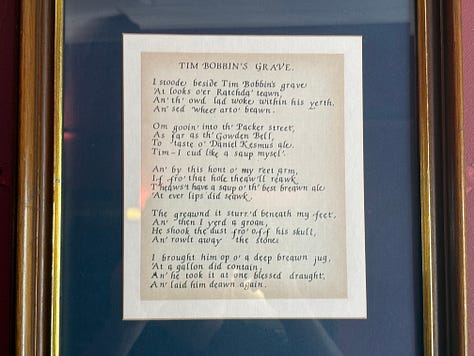 TIM BOBBIN'S GRAVE.
I stoode beside Tim Bobbin's grave
'At looks o'er Ratchda' teawn,
An' th' owd lad woke within his yerth,
An' sed 'wheer arto' beawn.
Om gooin' into th' Packer street,
As far as th' Gowden Bell,
To taste o' Daniel Kesmus ale.
Tim–I cud like a saup mysel'.
An' by this hont o' my reet arm,
If fro' that hole theaw'll reawk,
Theaws't have a saup o' th' best breawn ale
'At ever lips did seawk.
The greawnd it sturr'd beneath my feet,
An' then I yerd a groan,
He shook the dust fro' off his skull,
An' rowlt away the stone.
I brought him op o' a deep breawn jug,
'At a gallon did contain,
An' he took it at one blessed draught,
An' laid him deawn again.